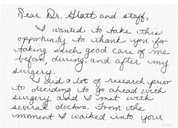 Dear Dr. Glatt and staff,
I wanted to take this
opportunity to thank you for
taking such good care of me
before, during, and after my
surgery.
I did a lot of research prior
to deciding to go ahead with
surgery, and I met with
several doctors. From the
moment I walked into your